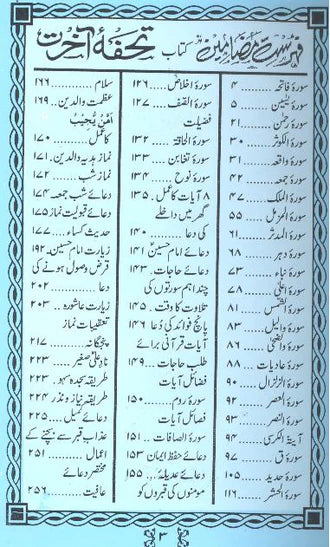 فہرست مضامین کتاب تحفۂ آخرت
سورۂ فاتحہ ...... ۴
سورۂ یٰسین ...... ۵
سورۂ رحمٰن ...... ۲۱
سورۂ الکوثر ...... ۳۰
سورۂ واقعہ ...... ۳۱
سورۂ جمعہ ...... ۴۲
سورۂ الملک ...... ۴۷
سورۂ المزمل ...... ۵۵
سورۂ المدثر ...... ۶۱
سورۂ دہر ...... ۶۸
سورۂ نباء ...... ۷۳
سورۂ اعلیٰ ...... ۷۸
سورۂ الشمس ...... ۸۱
سورۂ والیل ...... ۸۳
سورۂ والضحیٰ ...... ۸۶
سورۂ عادیات ...... ۸۸
سورۂ الزلزال ...... ۹۰
سورۂ العصر ...... ۹۲
سورۂ النصر ...... ۹۳
آیتہ الکرسی ...... ۹۴
سورۂ ق ...... ۹۷
سورۂ حدید ...... ۱۰۵
سورۂ الحشر ...... ۱۱۶
سورۂ اخلاص ...... ۱۲۶
سورۂ الصف ...... ۱۲۷
فضیلت
سورۂ الحاقۃ ...... ۱۳۲
سورۂ تغابن ...... ۱۳۳
سورۂ نوح ...... ۱۳۴
۸ آیات کا عمل ...... ۱۳۵
گھر میں داخلے
کی دعا ...... ۱۴۰
دعائے امام حسین ۱۴۱
دعائے حاجات ...... ۱۴۳
چند اہم سورتوں کی
تلاوت کا وقت ...... ۱۴۵
پانچ فوائد کی دعا ۱۴۶
آیات قرآنی برائے
طلب حاجات ...... ۱۴۹
فضائل آیات
سورۂ روم ...... ۱۵۰
فضائل آیات
سورۂ الصافات ...... ۱۵۱
دعائے حفظ ایمان ۱۵۳
دعائے عدیلہ ...... ۱۵۵
مومنوں کی قبروں کو
سلام ...... ۱۶۶
عظمت والدین ...... ۱۶۹
اَمَّنْ یُّجِیْبُ
کا عمل ...... ۱۷۰
نماز ہدیہ والدین ۱۷۱
نماز شب ...... ۱۷۲
دعائے شب جمعہ ۱۷۴
دعائے قبولیت نماز ۱۷۵
حدیث کساء ...... ۱۷۷
زیارت امام حسین ۱۹۲
قرض وصول ہونے کی
دعا ...... ۲۰۲
زیارت عاشورہ ...... ۲۰۳
تعقیبات نماز
پنجگانہ ...... ۲۱۷
ناد علی صغیر ...... ۲۲۳
طریقہ سجدہ سہو ۲۲۳
طریقہ نیاز و نذر ۲۲۴
دعائے کمیل ...... ۲۲۵
عذاب قبر سے بچنے کے
اعمال ...... ۲۵۱
مختصر دعائے
عافیت ...... ۲۵۶
۳